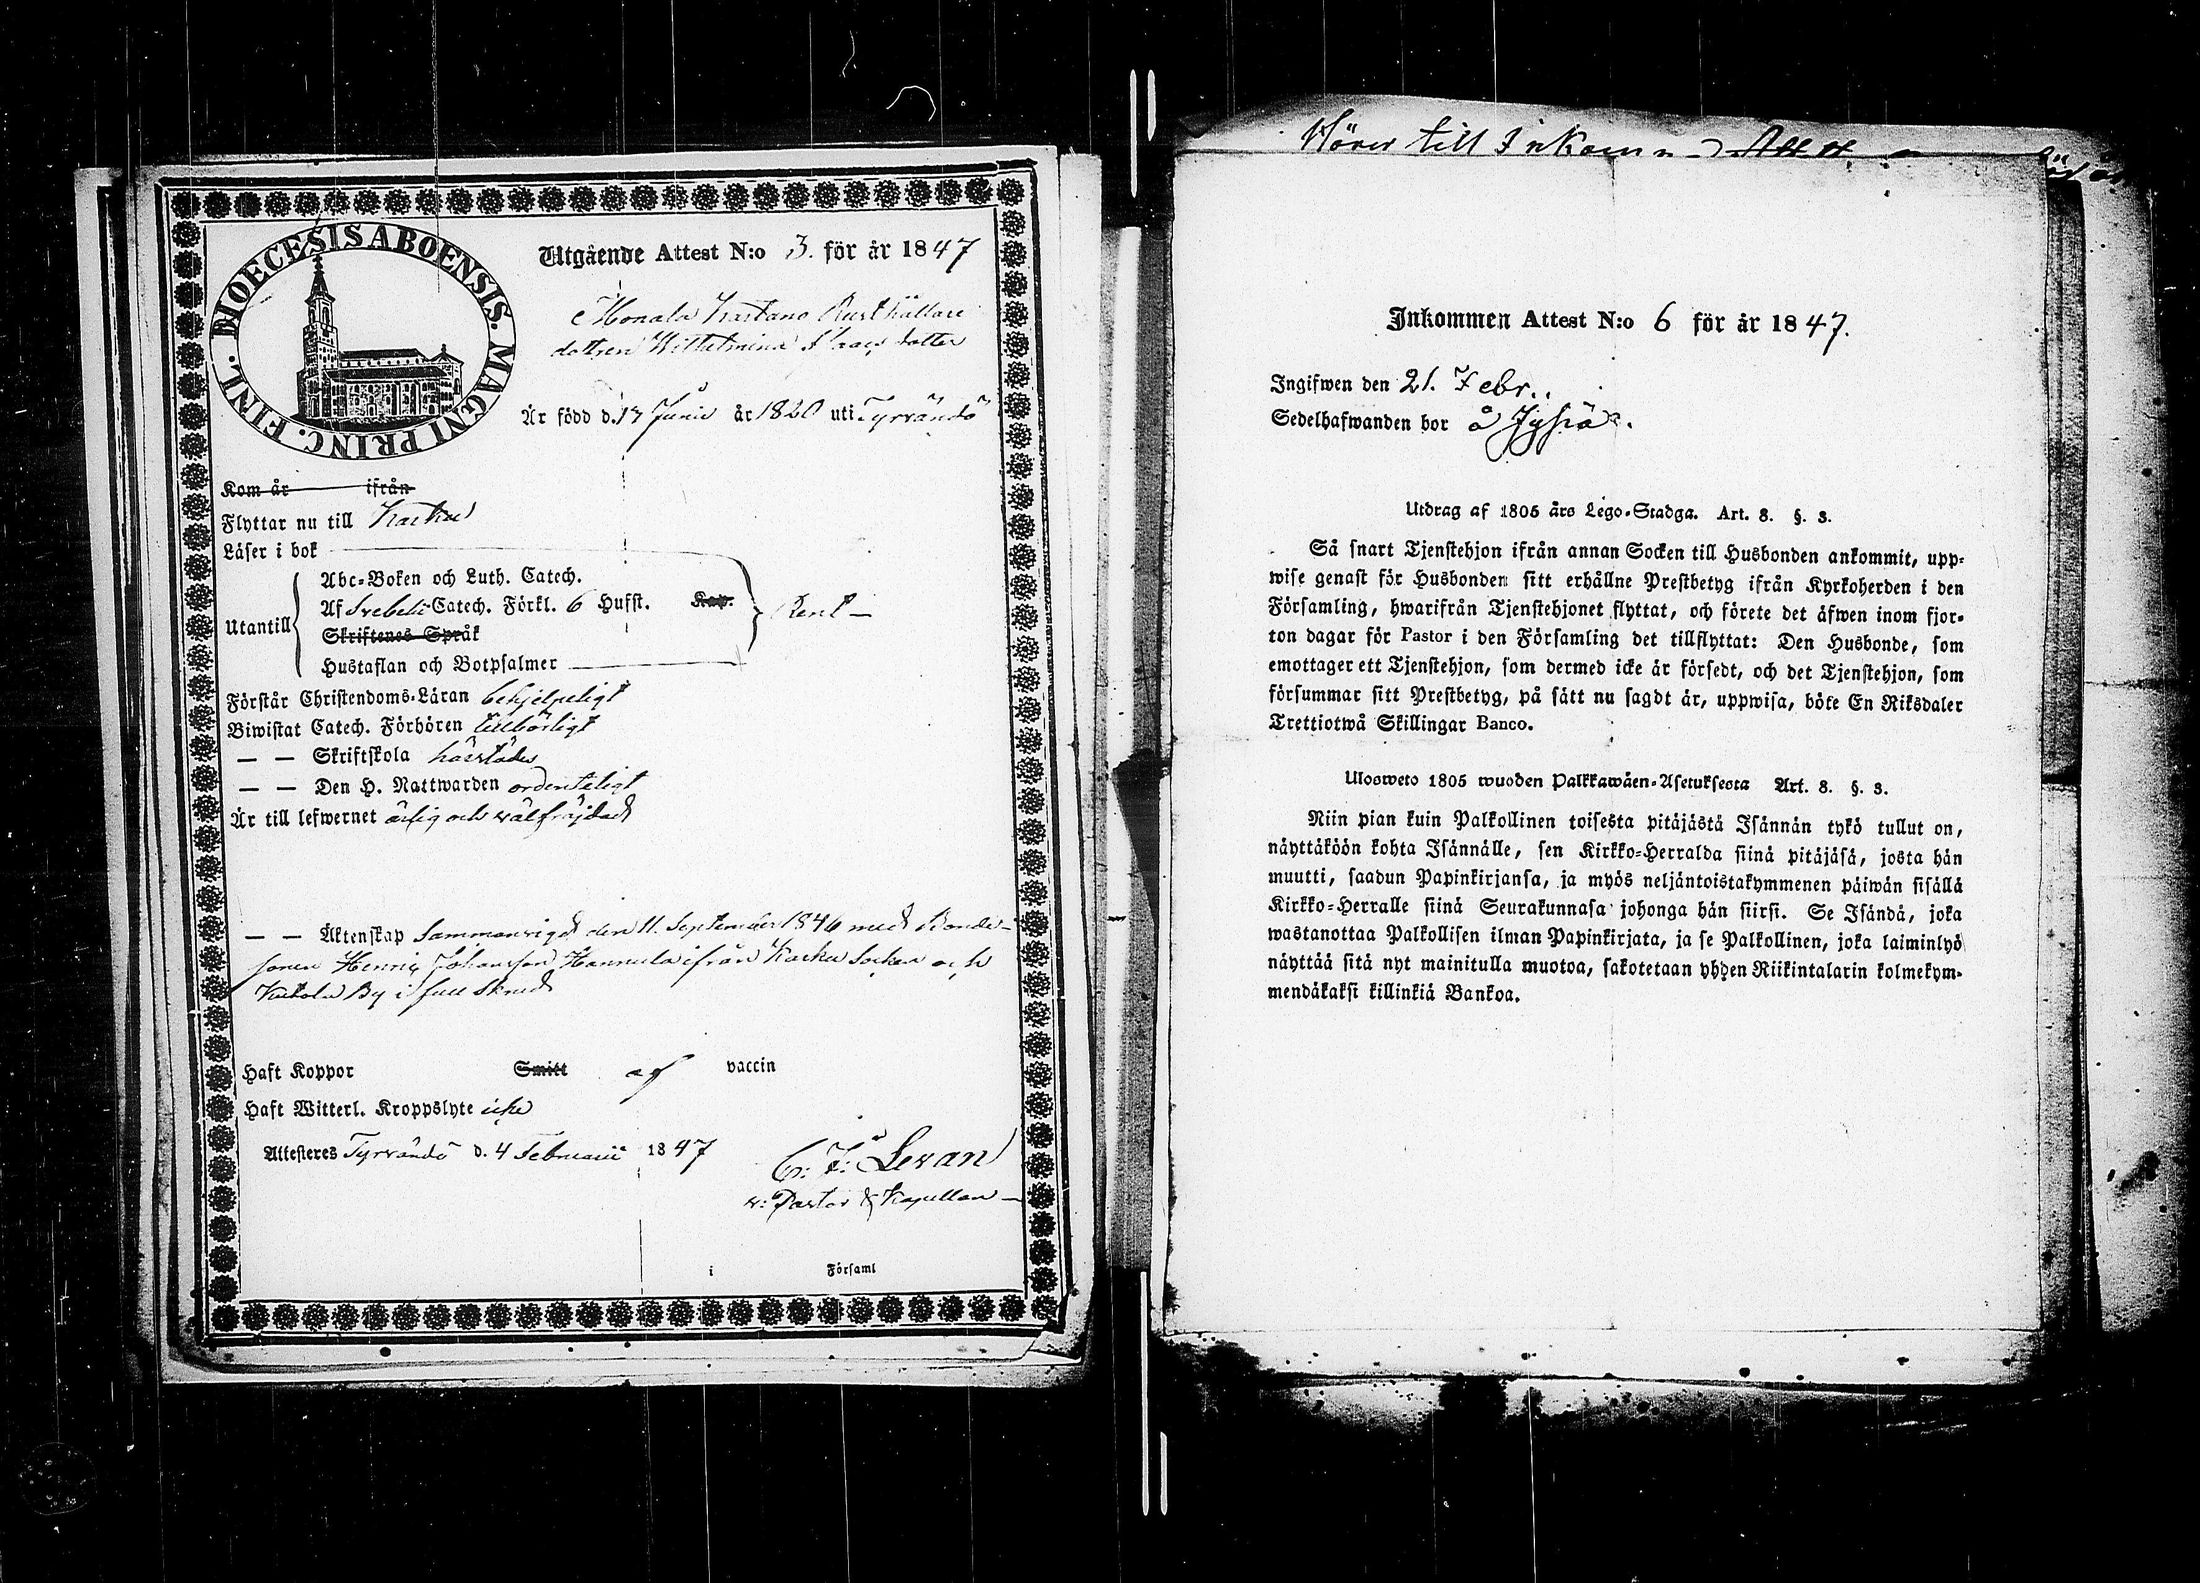 DIOECESIS ABOENSIS. MAGNI PRINC. FINL.
Utgående Attest N:o 3. för år 1847
Rusthållare
dottren Wilhelmina
Är född d. 17 Junii år 1820 uti Tyrvändö
Kom år ifrån
Flyttar nu till Karku
Läser i bok
Utantill
Abc-Boken och Luth. Catech.
Af Svebeli Catech. Förkl. 6 Hufst. Kap.
Skriftenes Språk
Hustaflan och Botpsalmer
Rent
Förstår Christendoms-Läran behjelpeligt
Biwistat Catech. Förhören tillbörligt
— — Skriftskola härstädes
— — Den H. Nattwarden ordenteligt
Är till lefwernet ärlig och välfräjdad
— — Äktenskap Sammanvigd den 11. September 1846 med Bonde-
sonen Henric Johansson Hannula ifrån Karku Socken och
Kutala By i full Skrud
Haft Koppor Smitt af vaccin
Haft Witterl. Kroppslyte icke
Attesteres Tyrvändö d. 4 Februarii 1847
G: F: Levan
v: Pastor & Kapellan
i Församl
Hörer till Inkomm
Inkommen Attest N:o 6 för år 1847.
Ingifwen den 21. Febr.
Sedelhafwanden bor å
Utdrag af 1805 års Lego-Stadga. Art. 8. §. 3.
Så snart Tjenstehjon ifrån annan Socken till Husbonden ankommit, upp-
wise genast för Husbonden sitt erhållne Prestbetyg ifrån Kyrkoherden i den
Församling, hwarifrån Tjenstehjonet flyttat, och förete det äfwen inom fjor-
ton dagar för Pastor i den Församling det tillflyttat: Den Husbonde, som
emottager ett Tjenstehjon, som dermed icke är försedt, och det Tjenstehjon, som
försummar sitt Prestbetyg, på sätt nu sagdt är, uppwisa, böte En Riksdaler
Trettiotwå Skillingar Banco.
Ulosweto 1805 wuoden Palkkawäen-Asetuksesta Art. 8. §. 3.
Niin pian kuin Palkollinen toisesta pitäjästä Isännän tykö tullut on,
näyttäköön kohta Isännälle, sen Kirkko-Herralda siinä pitäjäsä, josta hän
muutti, saadun Papinkirjansa, ja myös neljäntoistakymmenen päiwän sisällä
Kirkko-Herralle siinä Seurakunnasa johonga hän siirsi. Se Isändä, joka
wastanottaa Palkollisen ilman Papinkirjata, ja se Palkollinen, joka laiminlyö
näyttää sitä nyt mainitulla muotoa, sakotetaan yhden Riikintalarin kolmekym-
mendäkaksi killinkiä Bankoa.